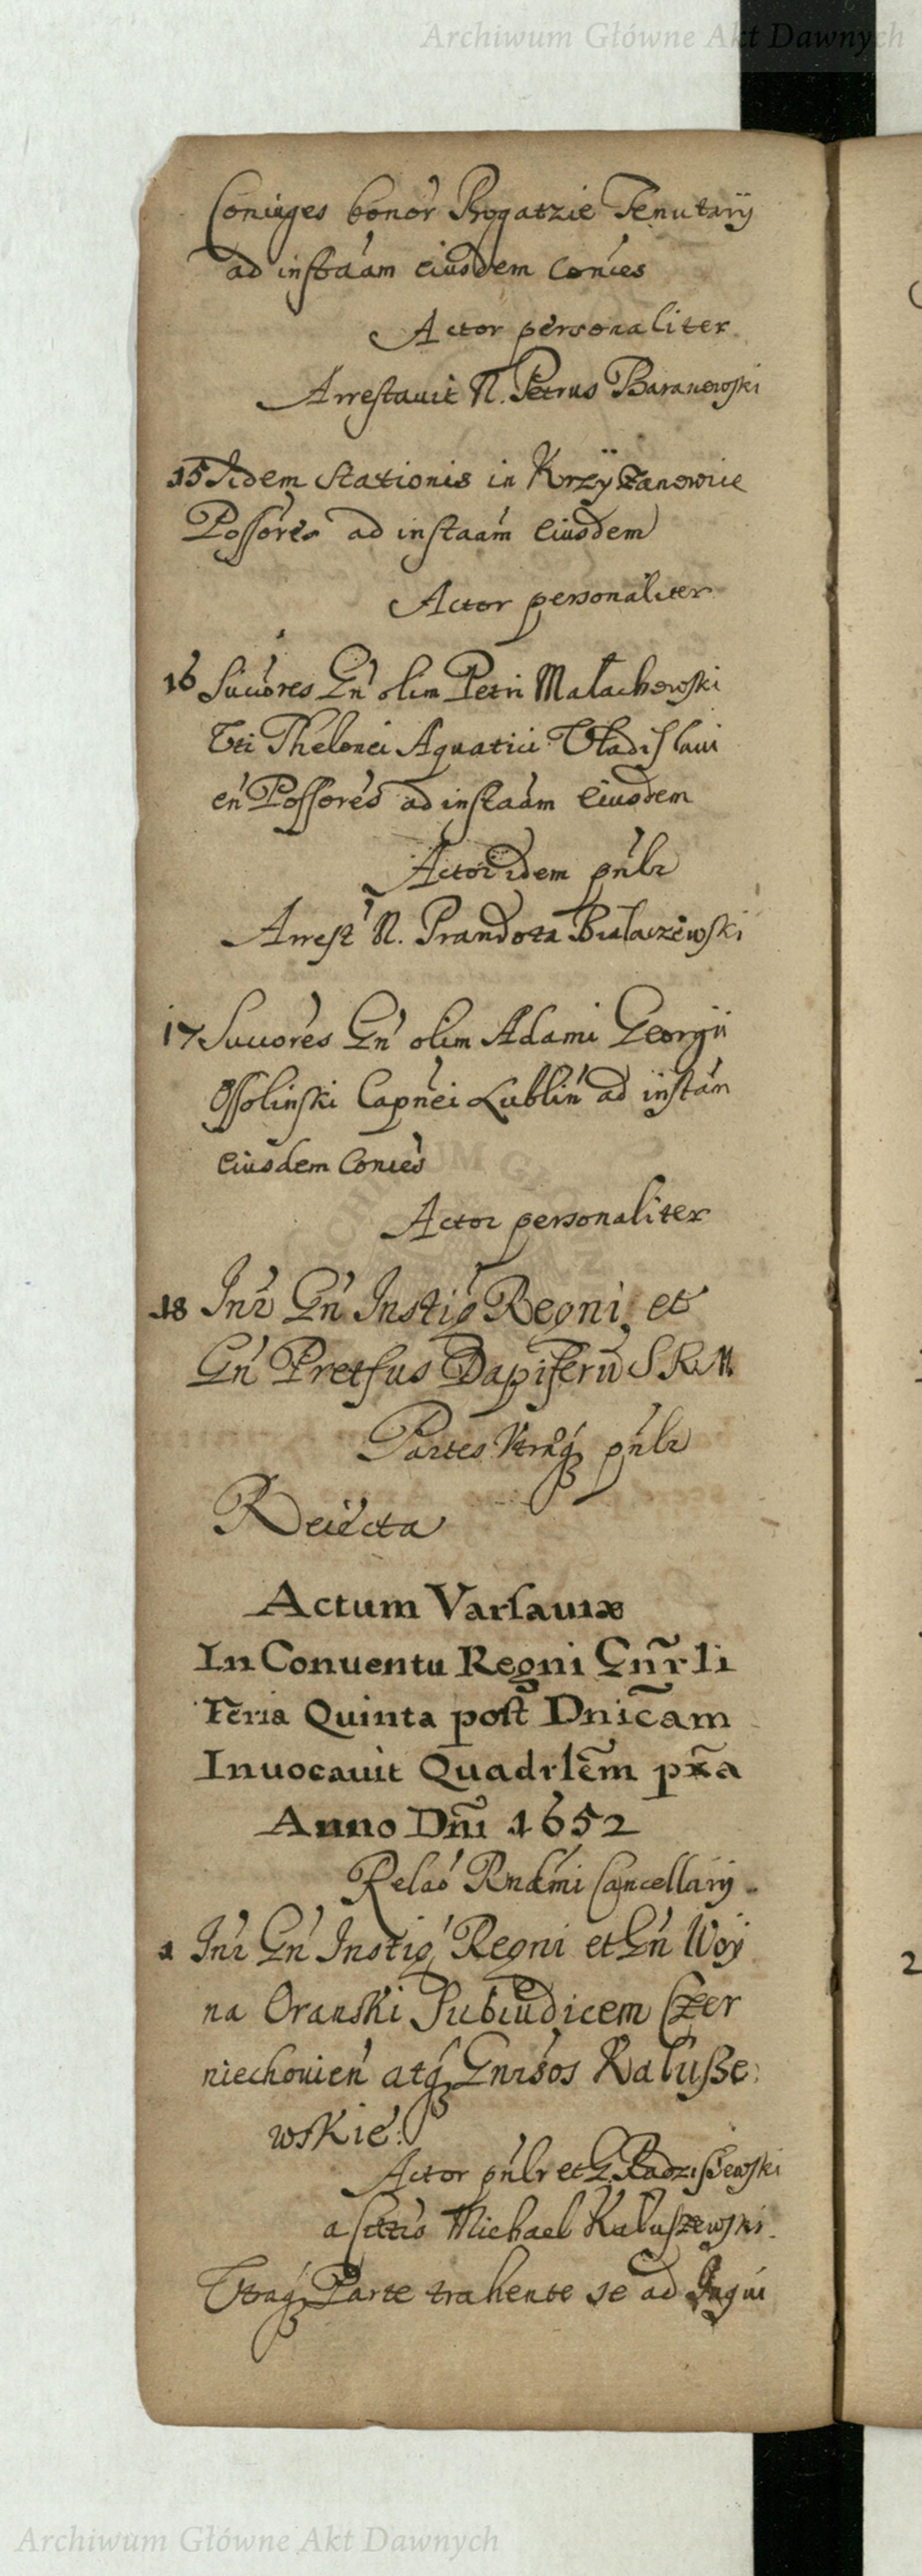 Archiwum Główne Akt Dawnych
Coniuges bonor Rogatzie Tenutarÿ
ad instãam eiusdem Conies
Actor personaliter
Arrestauit N. Petrus Baranowski
15 Idem Stationis in Krzÿżanowice
Possores ad instaam Eiusdem
Actor personaliter
16 Succores Gn olim Petri Małachowski
Tti Thelonei Aquatici Vladislaui
en Possores ad instaam Eiusdem
Actor idem pnlr
Arrest N. Prandota Białaczewski
17 Succores Gn olim Adami Georgii
Ossolinski Capnei Lublin ad instam
eiusdem Conies
Actor personaliter
18 Inr Gn Instig Regni et
Gn Pretfus Dapiferu S.R.M.
Partes Vtraq pnlr
Reiecta
Actum Varsauiæ
In Conuentu Regni Gnr̃li
Feria Quinta post Dnicam
Inuocauit Quadrlem pxa
Anno Dni 1652
Relao Rndmi Cancellarÿ
1 Inr Gn Instig Regni et Gn Woÿ
na Oranski Subiudicem Czer
niechouien atq Gnrsos Kałusze
wskie:
Actor pnlr et G. Radziszewski
a Michael Kałuszewski.
Vtraq Parte trahente se ad
2
Archiwum Główne Akt Dawnych